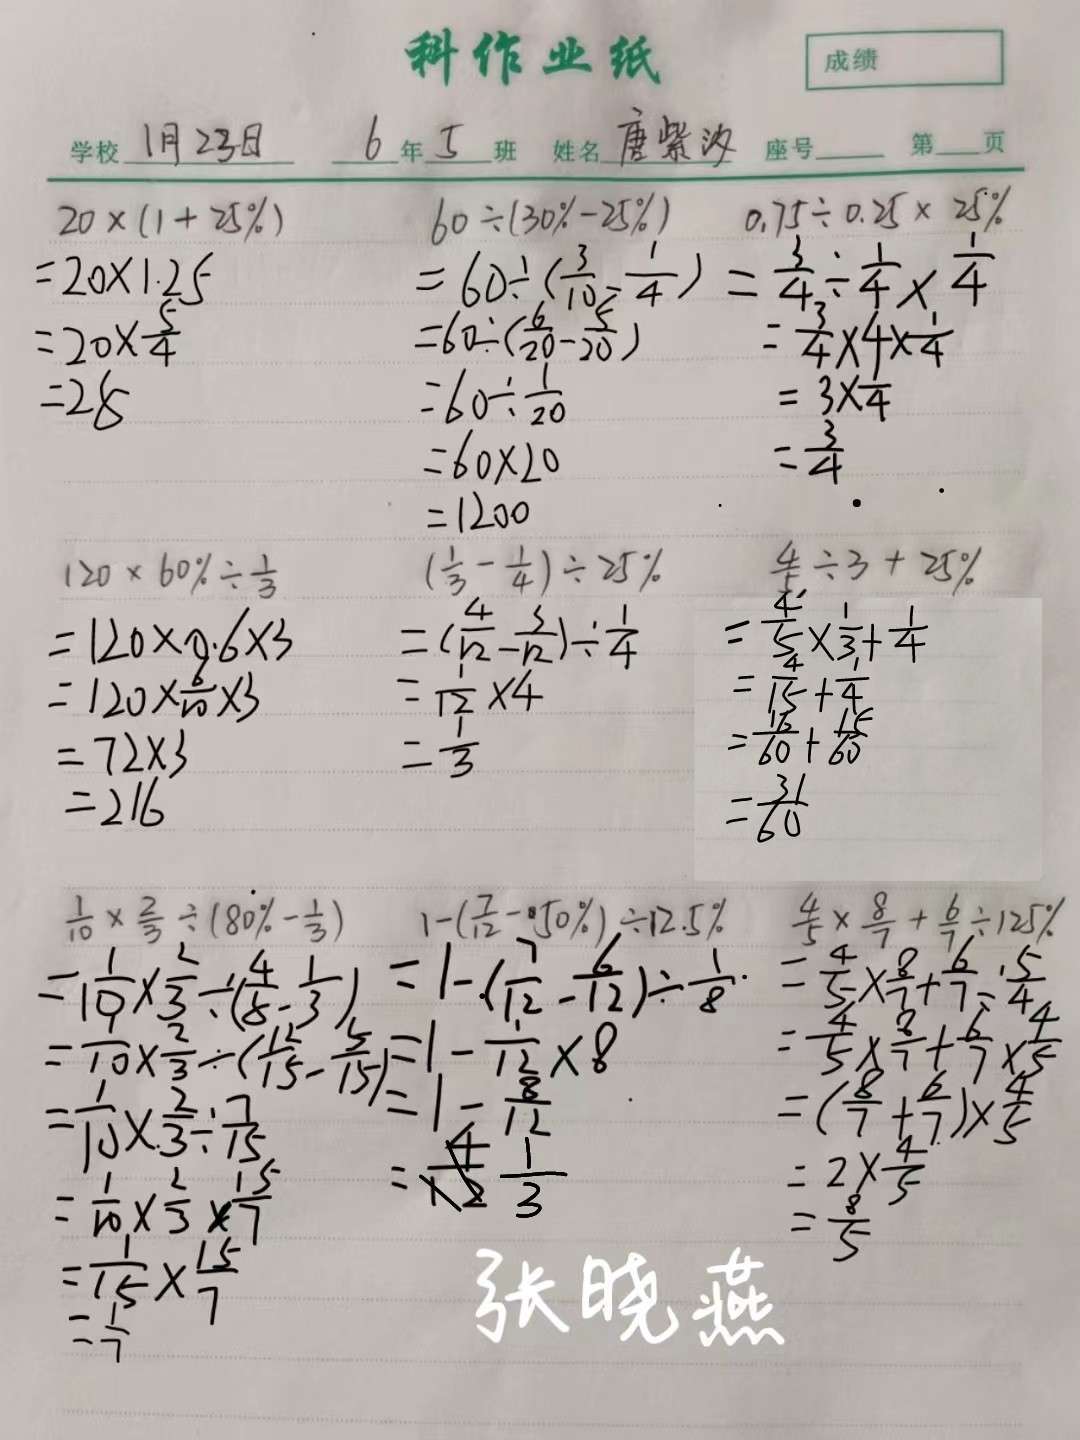 科作业纸
成绩
学校 1月23日 6 年 5 班 姓名 唐紫汐 座号 第 页
20×(1+25%)
=20×1.25
=20×5/4
=25
60÷(30%-25%)
=60÷(3/10-1/4)
=60÷(6/20-5/20)
=60÷1/20
=60×20
=1200
0.75÷0.25×25%
=3/4÷1/4×1/4
=3/4×4×1/4
=3×1/4
=3/4
120×60%÷1/3
=120×0.6×3
=120×6/10×3
=72×3
=216
(1/3-1/4)÷25%
=(4/12-3/12)÷1/4
=1/12×4
=1/3
4/5÷3+25%
=4/5×1/3+1/4
=4/15+1/4
=16/60+15/60
=31/60
1/10×2/3÷(80%-1/3)
=1/10×2/3÷(4/5-1/3)
=1/10×2/3÷(12/15-5/15)
=1/10×2/3÷7/15
=1/10×2/3×15/7
=1/15×15/7
=1/7
1-(7/12-50%)÷12.5%
=1-(7/12-6/12)÷1/8
=1-1/12×8
=1-8/12
=1/3
4/5×8/7+6/7÷125%
=4/5×8/7+6/7÷5/4
=4/5×8/7+6/7×4/5
=(8/7+6/7)×4/5
=2×4/5
=8/5
张晓燕